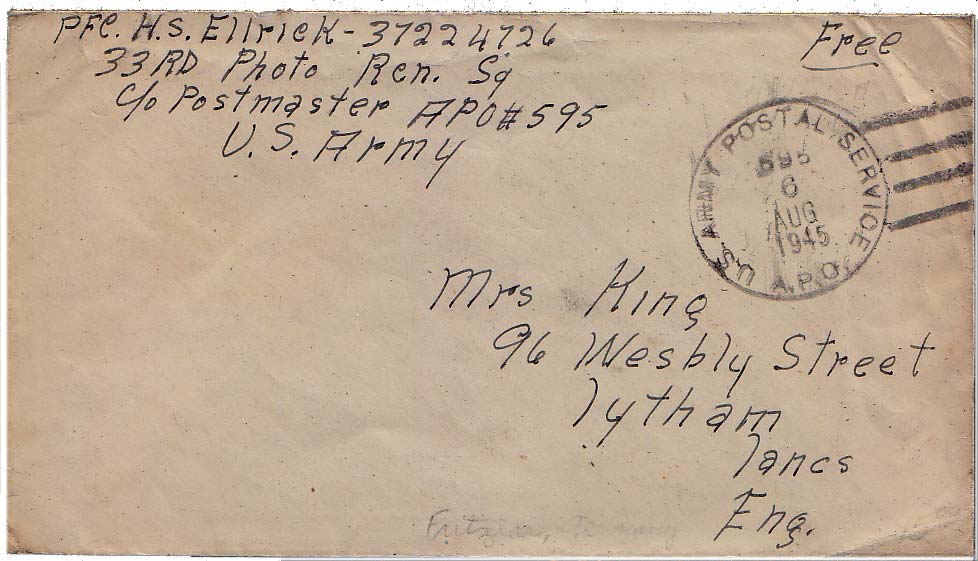 PFC. H.S. Ellrick - 37224726
33RD Photo Ren. Sq
c/o Postmaster APO#595
U.S. Army
Free
U.S. ARMY POSTAL SERVICE
595
6
AUG
1945
A.P.O.
Mrs King
96 Wesbly Street
lytham
lancs
Eng.
Germany